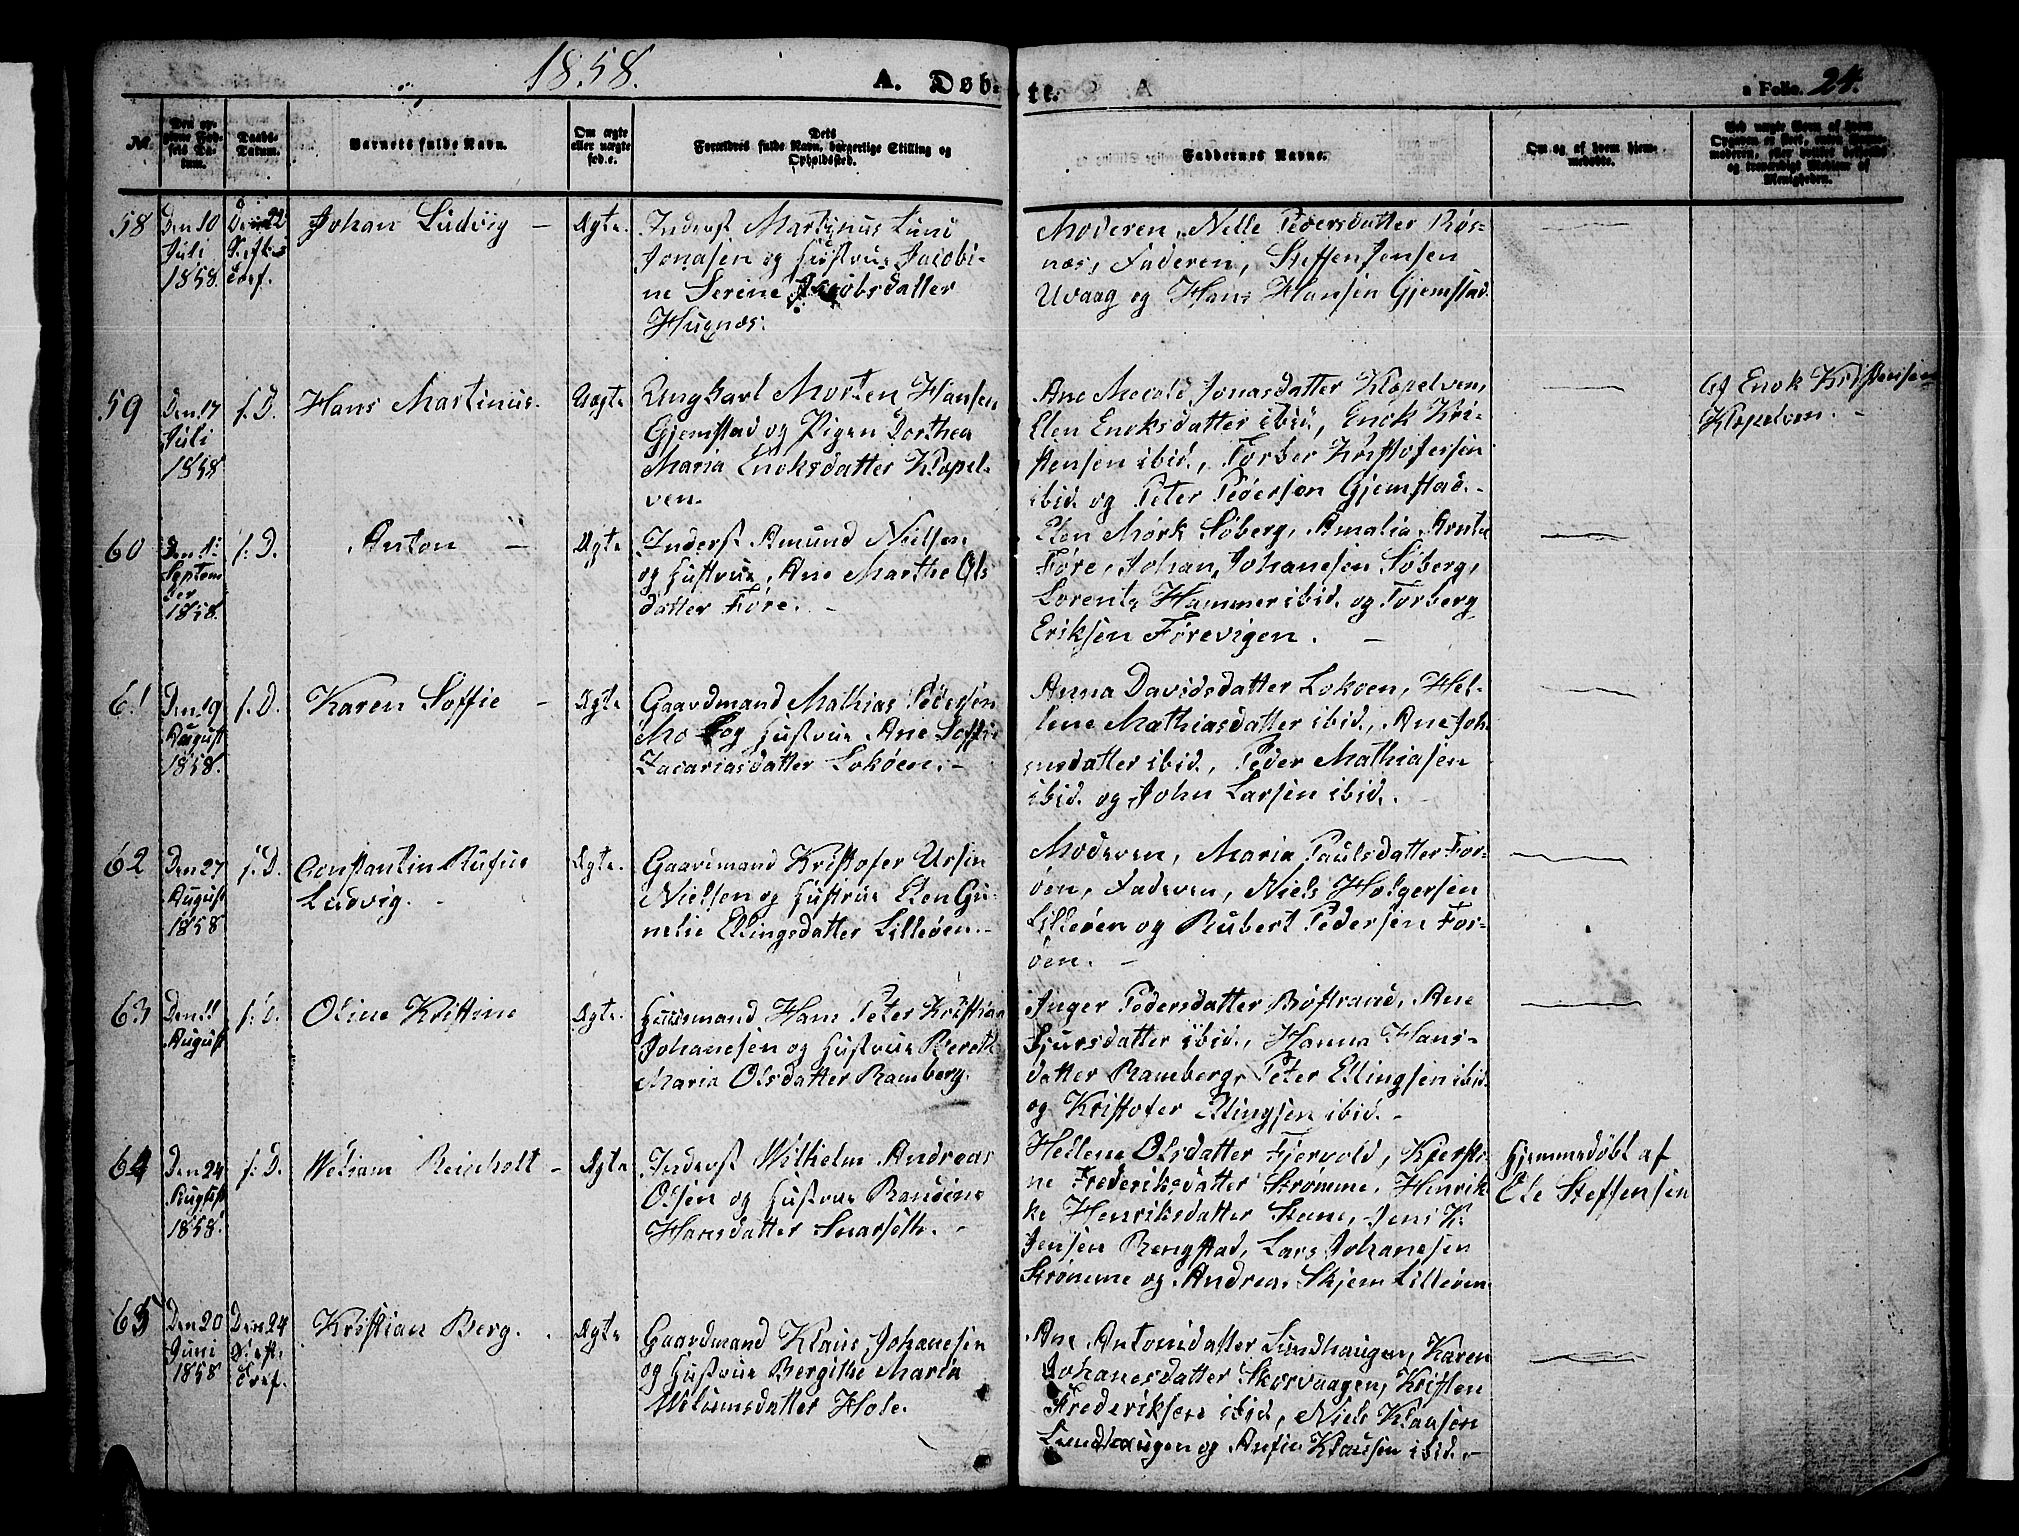 1858.
A. Døb-
te.
a Folio. 24.
Barnets fulde Navn.
Om ægte
eller uægte
fød.e.
Dets
Forældres fulde Navn, borgerlige Stilling og
Opholdssted.
Faddernes Navne.
Om og af hvem hjem-
medøbt.
58
Den 10
Juli
1858.
Den 22
Johan Ludvig -
Ægte.
Inderst Martinus
Jonasen og Hustrue Jacobi-
ne Serine Jacobsdatter
Hugnæs.
Moderen, Nelle Pedersdatter Røs-
næs, Faderen, Steffen Jensen
Uvaag og Hans Hansen Gjemstad.
59
Den 17
Juli
1858
s. D.
Hans Martinus.
Uægte
Ungkarl Morten Hansen
Gjemstad og Pigen Dorthea
Maria Enoksdatter Klopel-
ven.
Ane Jonasdatter Klopelven,
Elen Enoksdatter ibid, Enok Kri-
stensen ibid., Torber Kristofersen
ibid. og Peter Pedersen Gjemstad.-
Af Enok Kristensen
Klopelven. -
60
Den 1:
Septem
ber
1858.
s: D.
Anton -
Ægte
Inderst Amund Nielsen
og Hustrue, Ane Marthe Ols
datter Føre. -
Elen Mørk Søberg, Amalia
Føre, Johan Johanesen Søberg,
Lorents Hammer ibid. og Torberg
Eriksen Førevigen. -
61
Den 19
August
1858.
s. D.
Karen Soffie -
Ægte
Gaardmand Mathias Pedersen
Mo og Hustrue Ane Soffie
Zacariasdatter Lokøen. -
Anna Davidsdatter Lokøen, Hel-
lene Mathiasdatter ibid., Ane Joh-
nsdatter ibid., Peder Mathiasen
ibid. og John Larsen ibid.
62
Den 27
August
1858
s. D.
Constantin Rufus
Ludvig. -
Ægte.
Gaardmand Kristofer Ursin
Nielsen og Hustrue Elen Gu-
nelie Ellingsdatter Lilleøen. -
Moderen, Maria Paulsdatter For-
øen, Faderen, Niels Holgersen
Lilleøen og Rubert Pedersen For-
øen. -
63
Den 11
August
s: D.
Oline Kristine
Ægte.
Huusmand Hans Peter Kristian
Johanesen og Hustrue Bereth
Maria Olsdatter Ramberg.
Inger Pedersdatter Bøstrand, Ane
Sjursdatter ibid., Hanna Hans-
datter Ramberg, Peter Ellingsen ibid.
og Kristofer Ellingsen ibid. -
64
Den 24
August
1858.
s: D.
Weliam Reinholt -
Ægte
Inderst Wilhelm Andreas
Olsen og Hustrue Randine
Hansdatter Snarseth. -
Hellene Olsdatter Fjervold, Kjersti-
ne Frederiksdatter Strømme, Henrik-
ke Henriksdatter Stene, Jens K.
Jensen Rengstad, Lars Johanesen
Strømme og Andreas Skjem Lilleøen.
Hjemmedøbt af
Ole Steffensen
65
Den 20
Juni
1858
Den 24
Kristian Berg.
Ægte
Gaardmand Klaus Johanesen
og Hustrue Bergithe Maria
Weliamsdatter Hole.
Ane Antonsdatter Lundhaugen, Karen
Johanesdatter Skorvaagen, Kristen
Frederiksen ibid., Niels Klausen
Lundhaugen og Anfin Klausen ibid. -